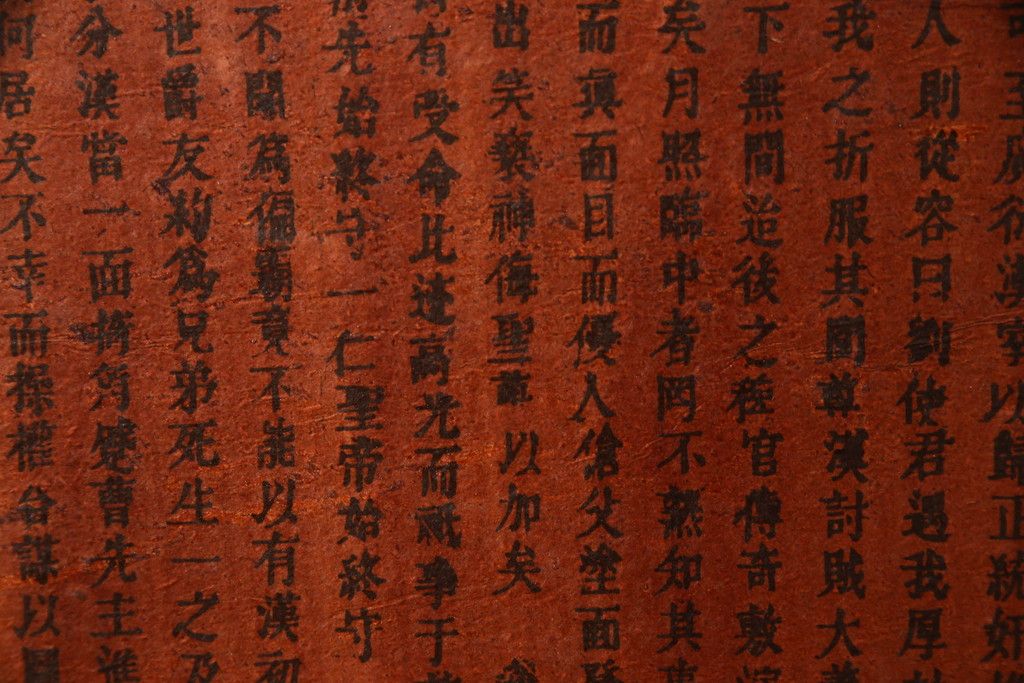 至廣從漢室以歸正統奸
人則從容曰劉使君遇我厚
我之折服其間尊漢討賊大義
下無間迨後之稗官傳奇敷演
矣月照臨中者罔不熟知其事
而真面目而優人傖父塗面登
出笑褻神侮聖蔑以加矣
有受命比逢高光而祇爭于
先始終守一仁聖帝始終守
不關為偏霸竟不能以有漢初
世爵友約為兄弟死生一之乃
分漢當一面掎角蹙曹先主進
何居矣不幸而操權台謀以